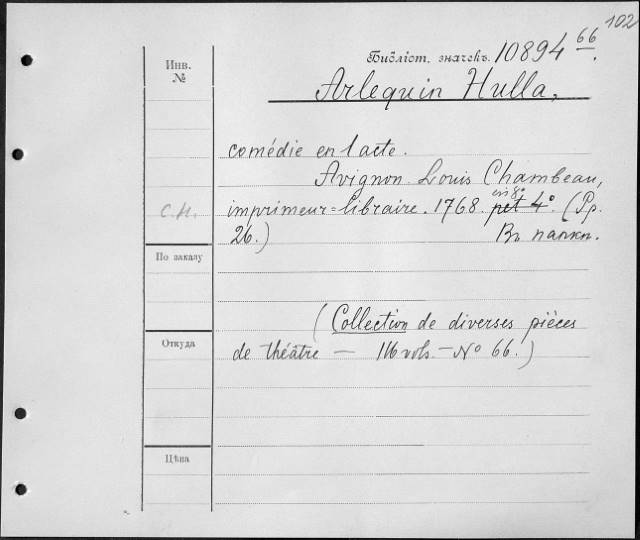 102
Инв.
№
Библіот. значекъ. 10894 66.
Arlequin Hulla,
comédie en 1 acte.
Avignon. Louis Chambeau,
in 8º
С.Н. imprimeur=libraire. 1768. pet 4º. (Pp.
26.) Въ папкѣ.
По заказу
(Collection de diverses pièces
Откуда
de théâtre — 116 vols. — Nº 66.)
Цѣна